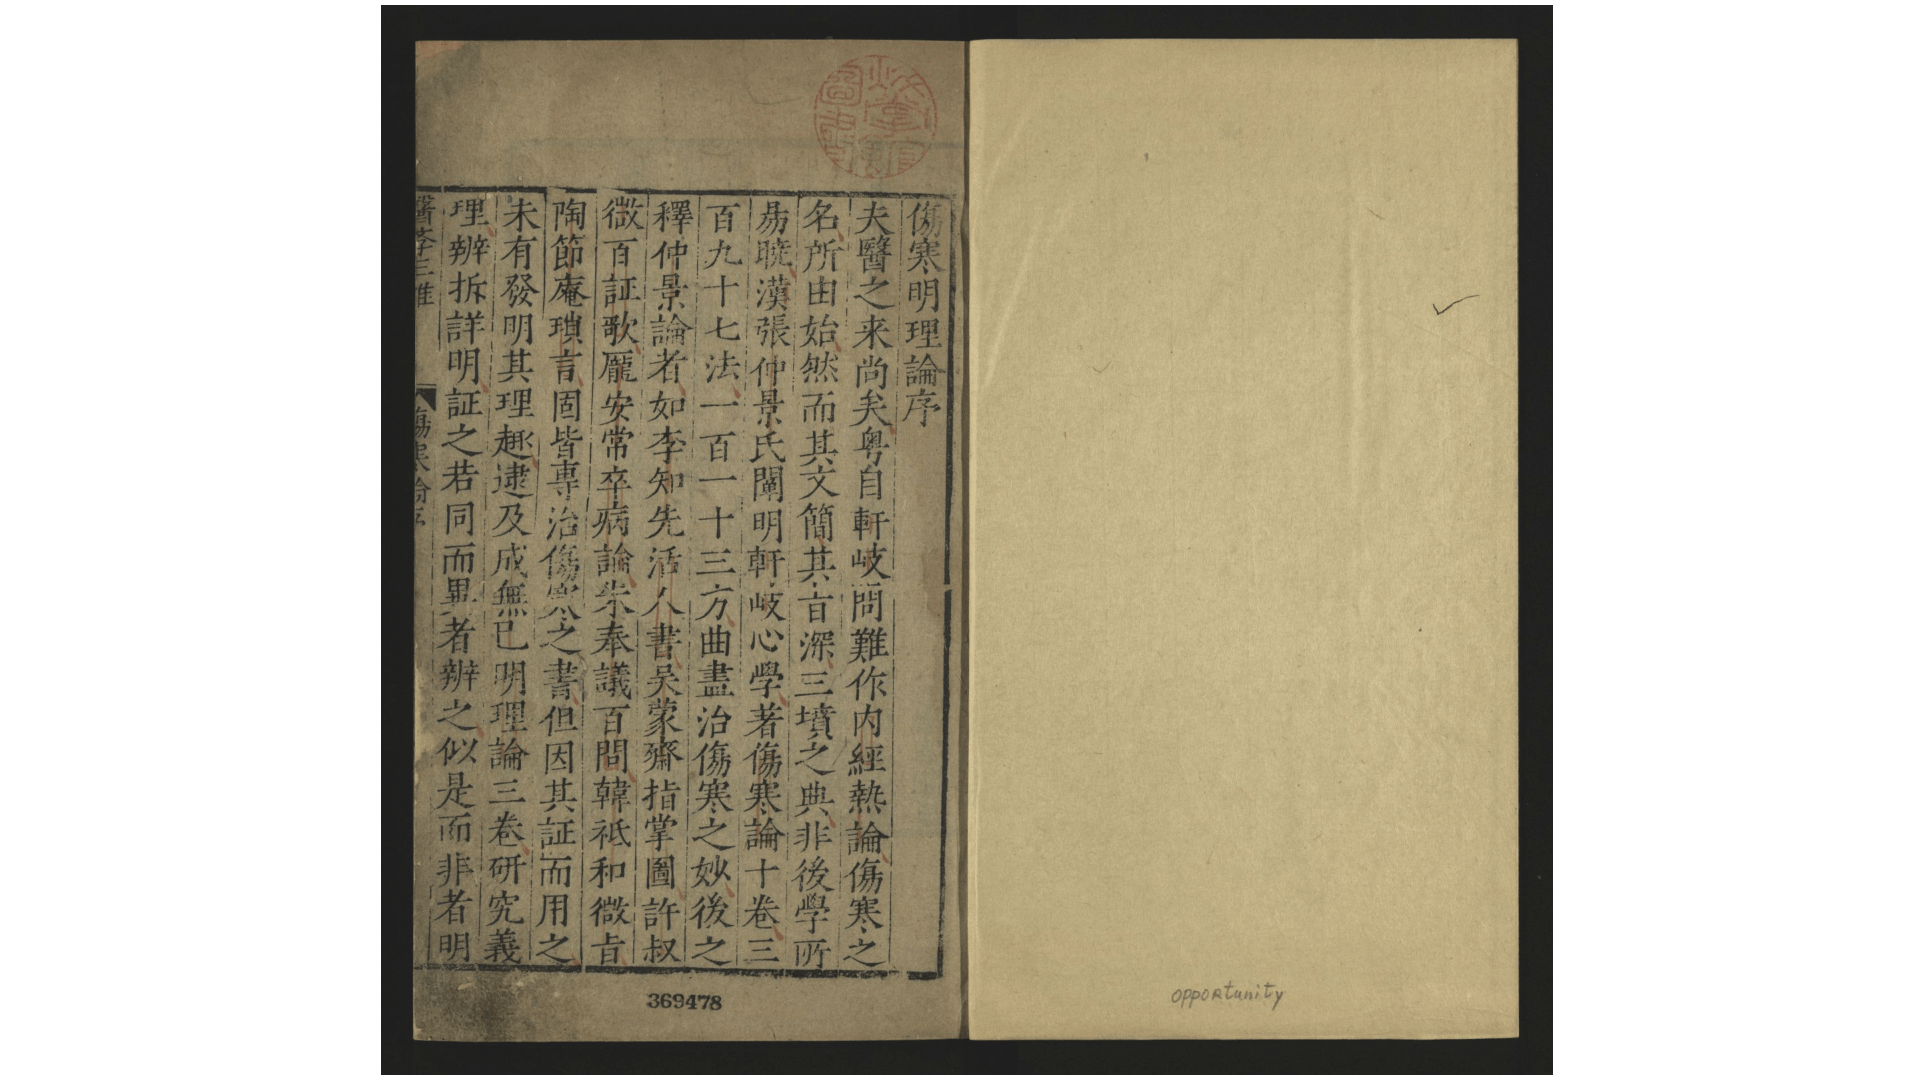 傷寒明理論序
夫醫之来尚矣粤自軒岐問難作内經熱論傷寒之
名所由始然而其文簡其㫖深三墳之典非後學所
易暁漢張仲景氏闡明軒岐心學著傷寒論十卷三
百九十七法一百一十三方曲盡治傷寒之妙後之
釋仲景論者如李知先活人書吴蒙齋指掌圖許叔
微百証歌龐安常卒病論朱奉議百問韓祗和微㫖
陶節庵瑣言固皆専治傷寒之書但因其証而用之
未有發明其理趣逮及成無已明理論三卷研究義
理辨拆詳明証之若同而異者辨之似是而非者明
傷寒論
369478
opportunity